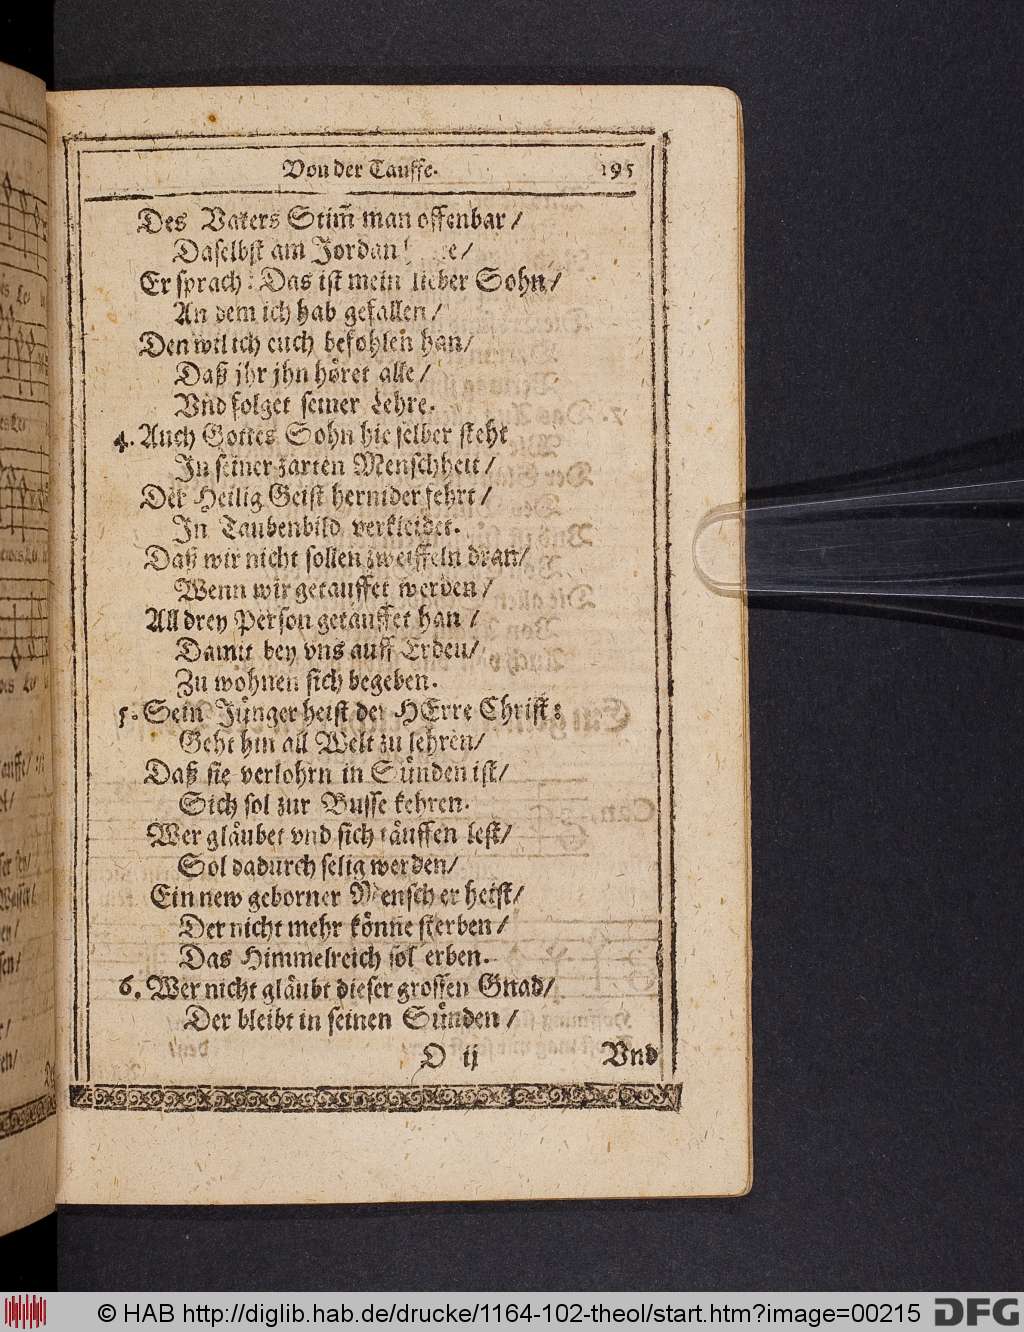 Von der Tauffe. 195
Des Vaters Stim̃ man offenbar /
Daselbst am Jordan /
Er sprach: Das ist mein lieber Sohn /
An dem ich hab gefallen /
Den wil ich euch befohlen han /
Daß jhr jhn höret alle /
Vnd folget seiner Lehre.
4. Auch Gottes Sohn hie selber steht
In seiner zarten Menschheit /
Der Heilig Geist hernider fehrt /
In Taubenbild verkleidet.
Daß wir nicht sollen zweiffeln dran /
Wenn wir getauffet werden /
All drey Person getäuffet han /
Damit bey vns auff Erden /
Zu wohnen sich begeben.
5. Sein Jünger heist der HErre Christ:
Geht hin all Welt zu lehren /
Daß sie verlohrn in Sünden ist /
Sich sol zur Busse kehren.
Wer gläubet vnd sich täuffen lest /
Sol dadurch selig werden /
Ein new geborner Mensch er heist /
Der nicht mehr könne sterben /
Das Himmelreich sol erben.
6. Wer nicht gläubt dieser grossen Gnad /
Der bleibt in seinen Sünden /
O ij Vnd
© HAB http://diglib.hab.de/drucke/1164-102-theol/start.htm?image=00215 DFG